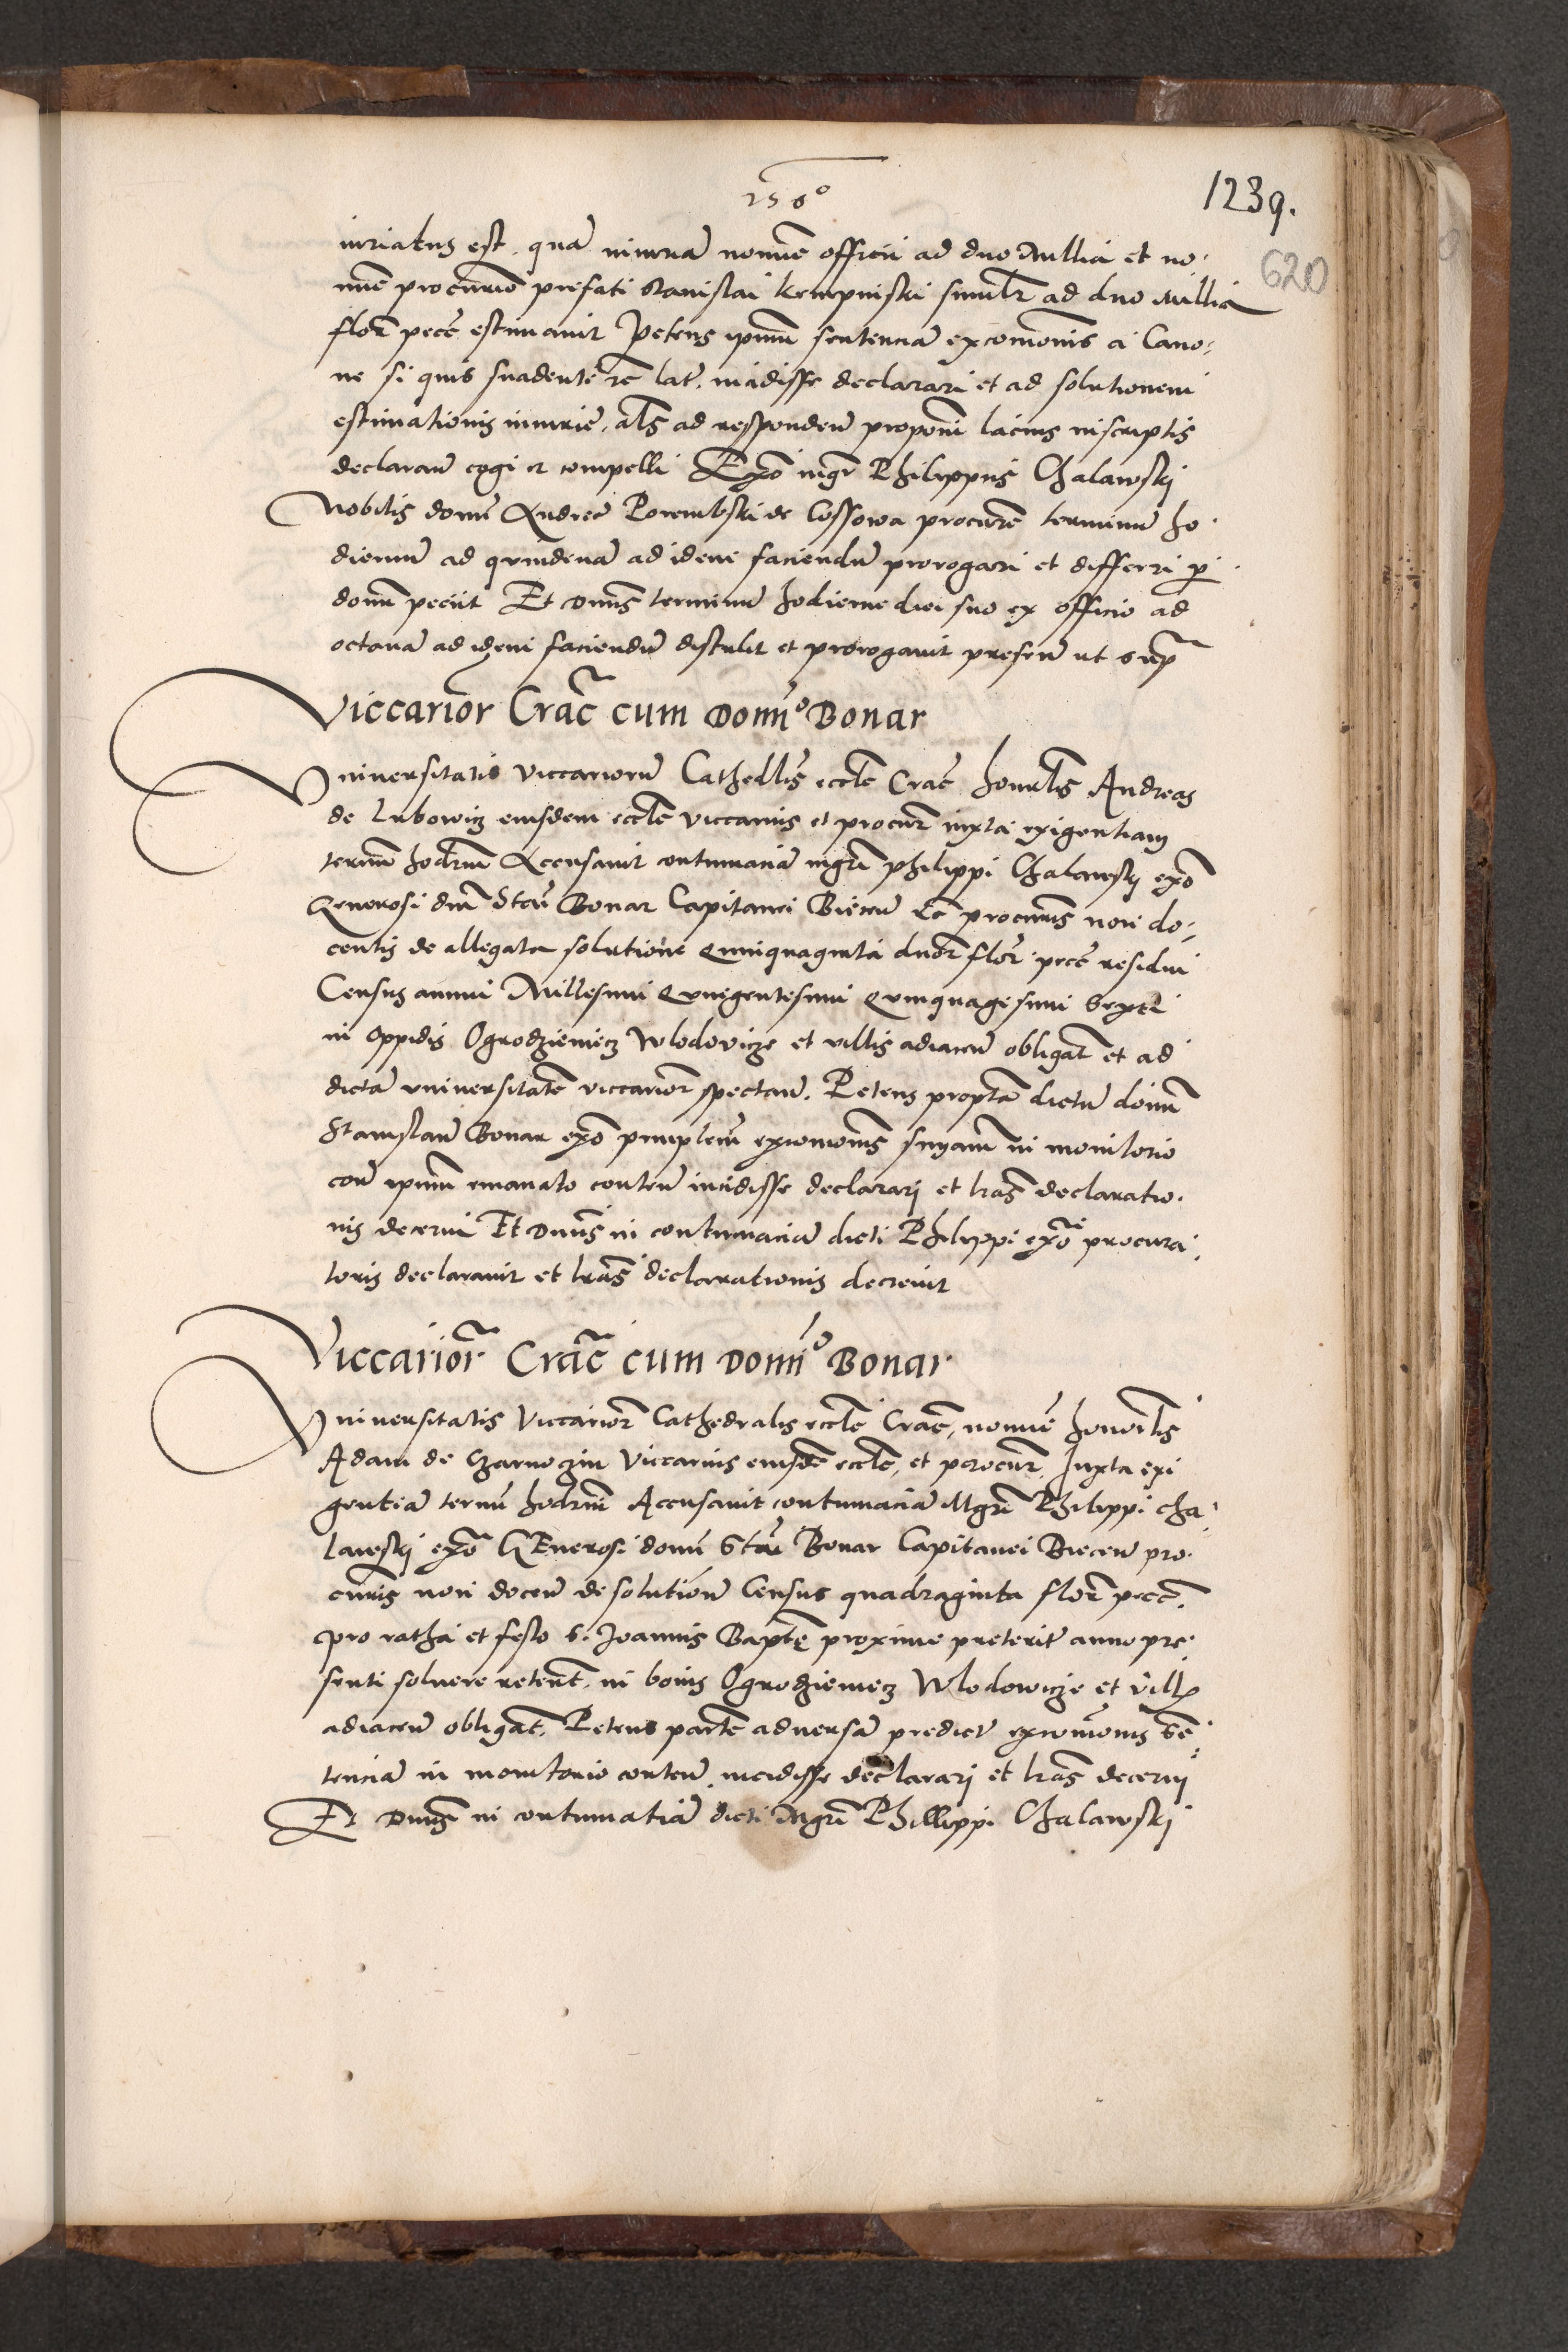 1239.
620
iuriatus est. quam iniuriam nomine officii ad duo Millia et no-
mine procurio prefati Stanislai Kempniski similr ad duo Millia
flor pece estimavit Petens ipsum sententiam excomonis a Cano-
ne si quis suadente rc lat. incidisse declarari et ad solutionem
estimationis iniurie, als ad responden proponi lacius inscriptis
declaran cogi et compelli Exo mgr Philippus Chalawskj
Nobilis domi Andree Porembski de Cossowa procure terminum ho-
diernum ad quindenam ad idem faciendum prorogari et differri p
domi peciit Et Dnus terminum hodierne diei suo ex officio ad
octavam ad idem faciendum distulit et prorogavit presen ut sup
Viccarior Crac cum Domino Bonar
Universitatis viccariorum Cathedlis eccle Crac honorlis Andreas
de Lubowicz eiusdem eccle viccarius et procur iuxta exigentiam
termi hodrnm Accusavit contumaciam mgri philippi Chalawskj exo
Generosi dni Stai Bonar Capitanei Biecen Ec procuris non do-
centis de allegata solutione Quinquaginta duor flor pece residui
Census anni Millesimi Quingentesimi Quinquagesimi Sexti
in oppidis Ogrodzieniecz Wlodovicze et villis adiacen obligat et ad
dictam universitatem viccarior spectan. Petens proptea dictum domi
Stanislaum Bonar exo principlem excomonis snyam in monitorio
con ipsum emanato conten incidisse declarari et lras declaratio-
nis decerni Et Dnus in contumaciam dicti Philippi exo procura-
toris declaravit et lras declarationis decrevit
Viccarior Crac cum Domino Bonar
Universitatis Viccarior Cathedralis eccle Crac, nomine honorlis
Adam de Czarnoczin Viccarius eiusde eccle, et procur Iuxta exi
gentiam termi hodrnm Accusavit contumaciam Mgri Philippi Cha-
lawskj exo GEnerosi domi Stai Bonar Capitanei Biecen pro-
curis non docen de solutione Census quadraginta flor pece
pro ratha et festo S. Joannis Bapte proxime preterit anno pre-
senti solvere retent. in bonis Ogrodzieniecz Wlodowicze et villis
adiacen obligat. Petens parte adversam predict excomonis Sen-
tenciam in monitorio conten incidisse declarari et lras decernj
Et Dnus in contumatiam dicti Mgri Phillippi Chalawskj